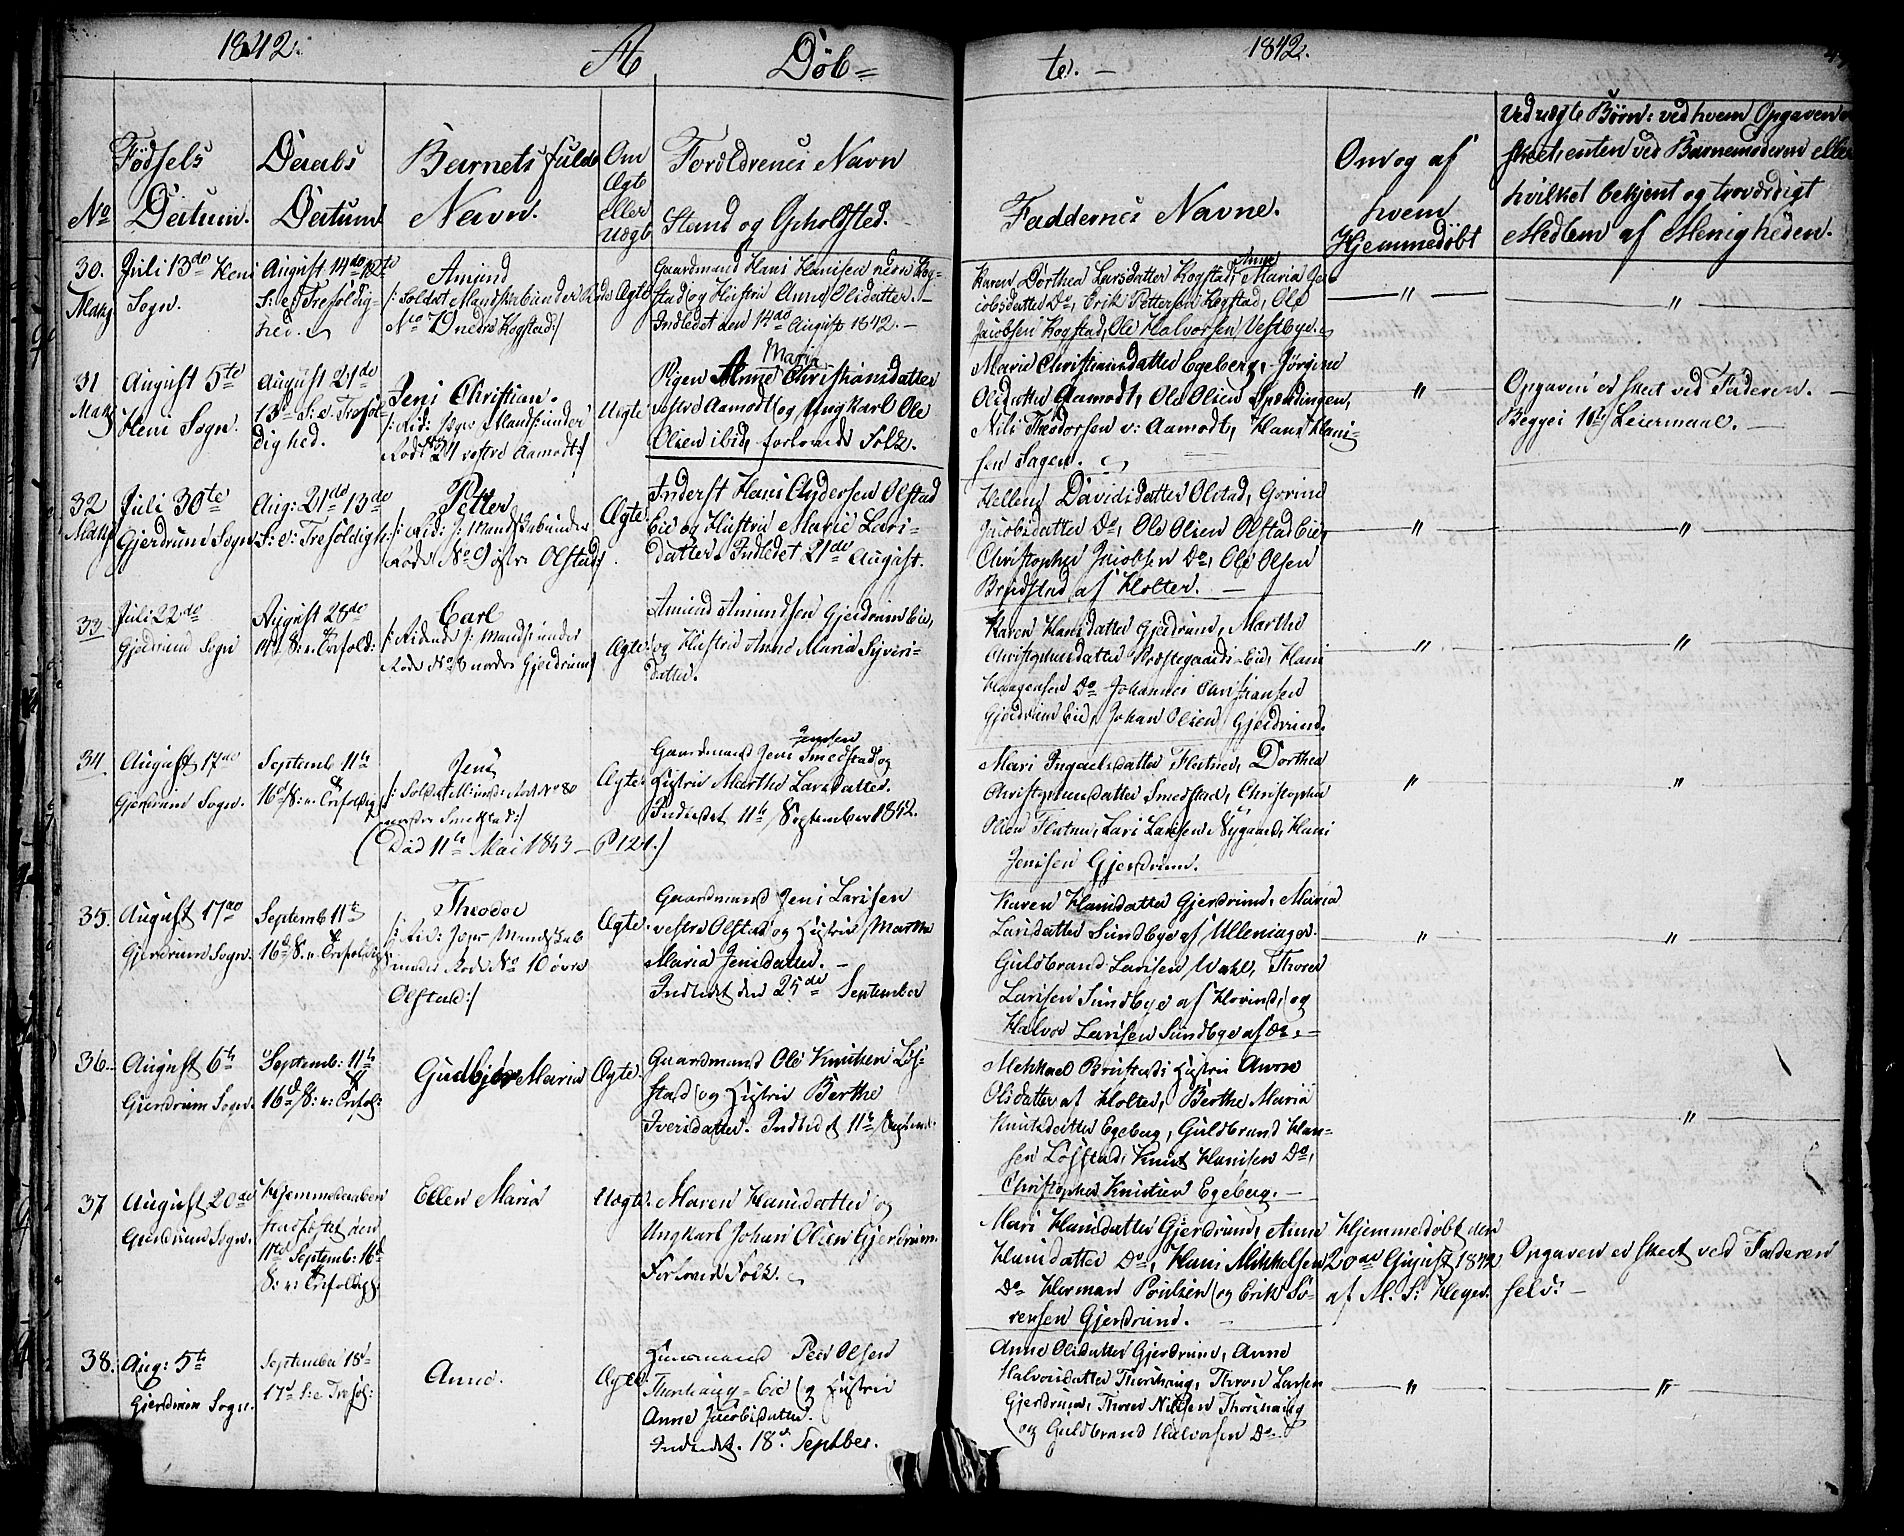 1842.
A
Döb=
te. –
1842.
No
Födsels
Datum.
Daabs
Datum
Barnets fulde
Navn.
Om
Ægte
eller
Uægte
Forældrenes Navn
Stand og Opholdsted.
Faddernes Navne.
Om og af
hvem
Hjemmedöbt
Ved uægte Børn: ved hvem Opgaven er
skeet, enten ved Barnemoderen eller
hvilket bekjent og troværdigt
Medlem af Menigheden.
30.
Juli 13de Heni
Sogn.
August 14de 12te
S: e: Trefoldig-
hed.
Amund
/: Soldat Mandskab under Rode
No 7 nedre Kogstad:/
Ægte
Gaardmand Hans Hansen nedre Kog-
stad og Hustru Anne Olsdatter. –
Indledet den 14de August 1842. –
Karen Dorthea Larsdatter Kogstad, Anne Maria Ja-
cobsdatter Do, Erik Pettersen Kogstad, Ole
Jacobsen Kogstad, Ole Halvorsen Vestbye.
"
"
31
August 5te
Heni Sogn.
August 21de
13de S: e: Trefol-
dighed.
Jens Christian.
Rode No 21 vestre Aamodt:/
Uægte
Pigen Anne Maria Christiansdatter
vestre Aamodt og Ungkarl Ole
Olsen ibid, forlovede Folk.
Marie Christiansdatter Egeberg, Jørgine
Olsdatter Aamodt, Ole Olsen Spændingen,
Nils Theodorsen v: Aamodt, Hans Han-
sen Hagen.
"
Opgaven er skeet ved Faderen. –
Begges 1ste Leiermaal. –
32
Juli 30te
Gjerdrum Sogn
Aug: 21de 13de
S: e: Trefoldigh:
Petter
Rode No 9 østre Olstad:/
Ægte
Inderst Hans Andersen Olstad
Eie og Hustru Marie Lars-
datter. Indledet 21de August.
Hellene Davidsdatter Olstad, Gorine
Jacobsdatter Do, Ole Olsen Olstad Eie,
Christopher Jacobsen Do, Ole Olsen
Brudstad af Holter. –
"
"
33
Juli 22de
Gjerdrum Sogn
August 28de
14de S: e: Trefold:
Carl
Rode No 8 nordre Gjerdrum:/
Ægte
Amund Amundsen Gjerdrum Eie,
og Hustru Anne Maria Syvers-
datter.
Karen Hansdatter Gjerdrum, Marthe
Christophersdatter Præstegaards-Eie, Hans
Haagensen Do Johannes Christiansen
Gjerdrum Eie, Johan Olsen Gjerdrum.
"
"
34
August 17de
Gjerdrum Sogn.
Septemb 11te
16de S: e: Trefoldigh:
Jens
nordre Smedstad:/
(Død 11te Mai 1843 – P 121.)
Ægte
Gaardmand Jens Jensen Smedstad og
Hustru Marthe Larsdatter.
Indledet 11te September 1842.
Mari Ingaelsdatter Flatner, Dorthea
Christophersdatter Smedstad, Christopher
Olsen Flatner, Lars Larsen Nygaard, Hans
Jensen Gjerdrum.
"
"
35.
August 17de
Gjerdrum Sogn.
Septemb 11te
16de S: e: Trefoldigh:
Theodor
under Rode No 10 øvre
Olstad:/
Ægte.
Gaardmand Jens Larsen
vestre Olstad og Hustru Marthe
Maria Jensdatter. –
Indledet den 25de September
Karen Hansdatter Gjerdrum, Maria
Larsdatter Sundbye af Ullensager.
Guldbrand Larsen Wahl, Thorer
Larsen Sundbye af Hovind, og
Halvor Larsen Sundbye af Do. –
"
"
36.
August 6te
Gjerdrum Sogn.
Septemb: 11te
16de S: e: Trefol:
Gudbjør Maria
Ægte.
Gaardmand Ole Knutsen Løs-
stad og Hustru Berthe
Iversdatter. Indledet 11te Septemb:
Mekkael Brustads Hustru Anne
Olsdatter af Holter, Berthe Maria
Knutsdatter Egeberg, Guldbrand Han-
sen Løsstad, Knut Hansen Do,
Christopher Knutsen Egeberg. –
"
37
August 20de
Gjerdrum Sogn.
Hjemmedaaben
stadfæstet den
11te Septemb: 16de
S: e: Trefoldigh:
Ellen Maria
Uægte.
Maren Hansdatter og
Ungkarl Johan Olsen Gjerdrum.
Forlovede Folk.
Mari Hansdatter Gjerdrum, Anne
Hansdatter Do, Hans Mikkelsen
Do Herman Poulsen og Erik Sø-
rensen Gjerdrum.
Hjemmedöbt den
20de August 1842
af M. S: Heyer.
Opgaven er skeet ved Faderen
selv: –
38.
Aug: 5te
Gjerdrum Sogn.
September 18de
17de S: e: Trefol:
Anne.
Ægte
Huusmand Peder Olsen
Thorshaug-Eie og Hustru
Anne Jacobsdatter.
Indledet. 18de Septber.
Anne Olsdatter Gjerdrum, Anne
Halvorsdatter Thorshaug, Thoron Larsen
Gjerdrum, Thoron Nilsen Thorshaug
og Guldbrand Halvorsen Do
"
"